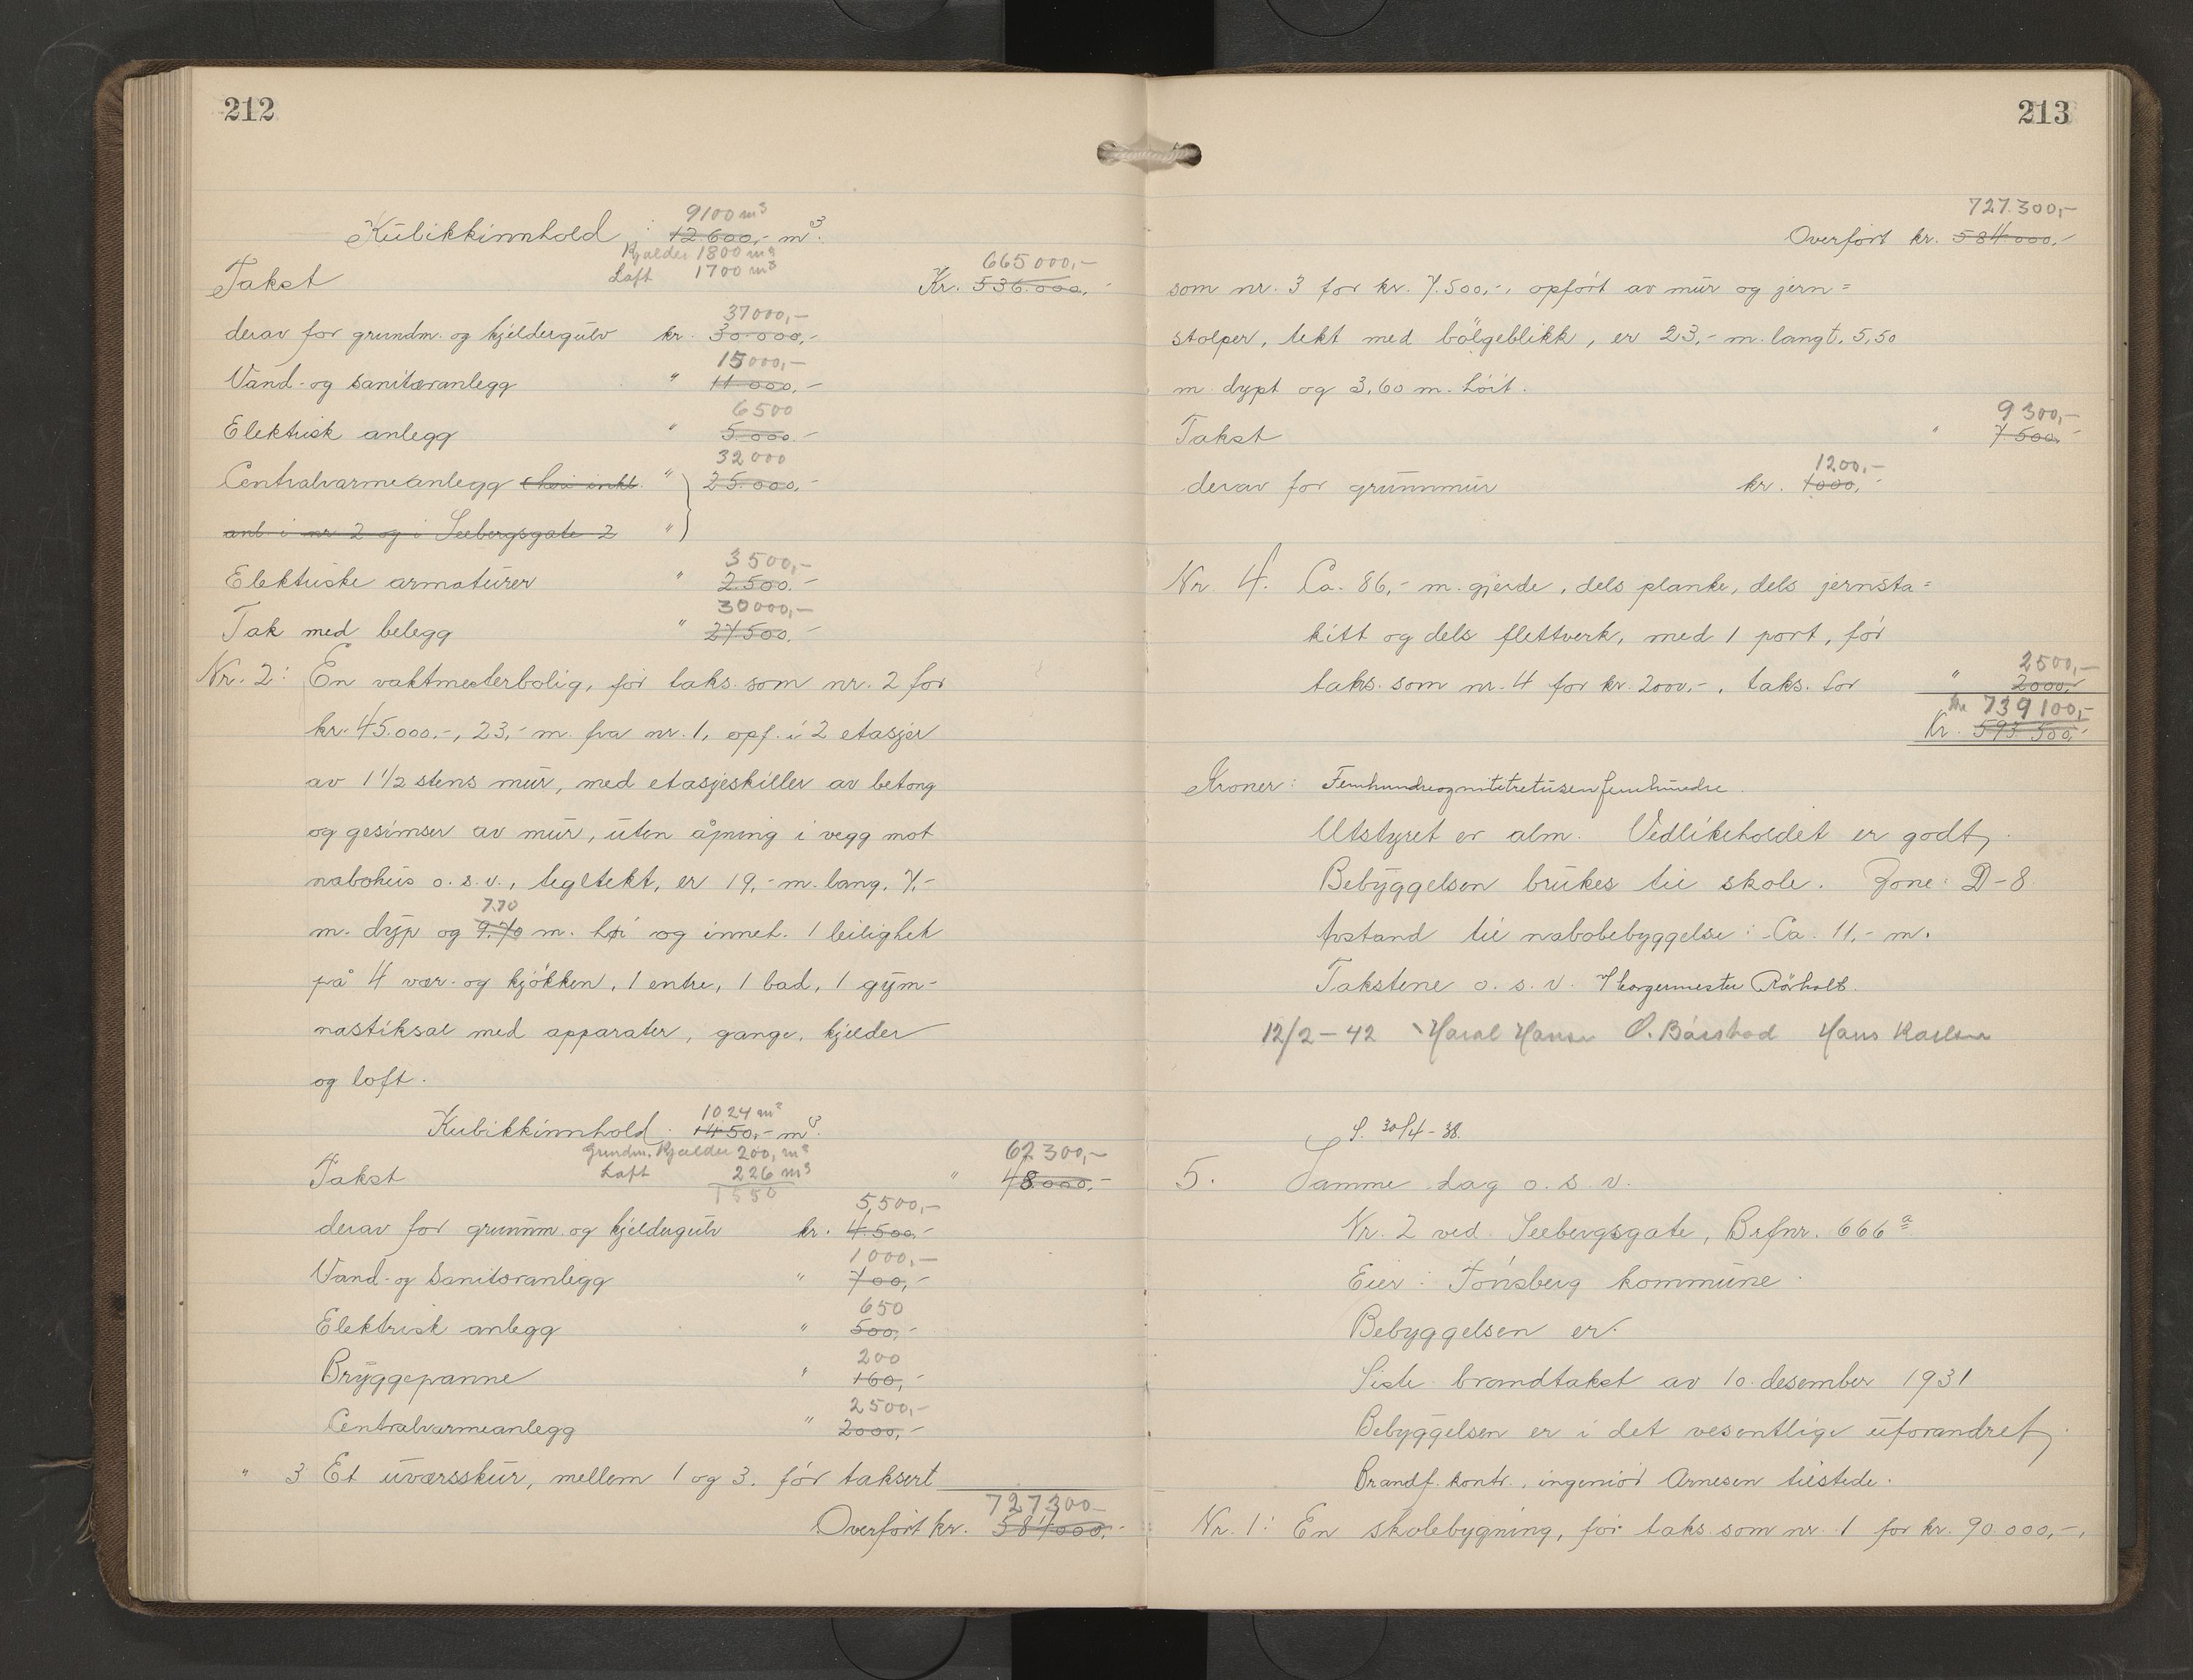 212
9100 m³
Kubikkinnhold : 12 600,- m³.
Kjælder 1800 m³
Loft 1700 m³
665000,-
Takst Kr. 536.000,-
37000,-
derav for grundm. og kjeldergulv kr. 30.000,-
15000,-
Vand- og sanitæranlegg " 11 000,-
6500
Elektrisk anlegg " 5.000.-
32000
Centralvarmeanlegg (heri inkl. " 25.000,-
anl. i nr 2 og i Seebergsgate 2 "
3500,-
Elektriske armaturer " 2.500.-
30000,-
Tak med belegg " 27500.-
Nr. 2: En vaktmesterbolig, før taks. som nr. 2 for
kr. 45.000.-, 23,- m. fra nr. 1, opf. i 2 etasjer
av 1 1/2 stens mur, med etasjeskiller av betong
og gesimser av mur, uten åpning i vegg mot
nabohus o. s. v., tegltekt, er 19,- m. lang, 7,-
7.70
m. dyp og 9.70 m. høi og inneh. 1 leilighet
på 4 vær. og kjøkken, 1 entre, 1 bad, 1 gym-
nastiksal med apparater, gange, kjelder
og loft.
1024 m³
Kubikkinnhold. 1450,- m³.
Grundm. Kjælder 200, m³
Loft 226 m³
1550
62 300,-
Takst " 48.000,-
5,500,-
derav for grunnm. og kjeldergulv kr. 4.500,-
1000,-
Vand- og Sanitæranlegg " 700,-
650
Elektrisk anlegg " 500,-
200
Bryggepanne " 160,-
2500,-
Centralvarmeanlegg " 2000,-
" 3 Et uværsskur, mellem 1 og 3. før taksert
727300-
Overført kr. 584000,-
213
727.300,-
Overført kr. 584.000,-
som nr. 3 for kr. 7.500,-, opført av mur og jern=
stolper, tekt med bølgeblikk, er 23,- m. langt, 5,50
m. dypt og 3,60 m. høit.
9 300,-
Takst " 7.500,-
1200,-
derav for grunnmur kr. 1000,-
Nr. 4. Ca. 86,- m. gjerde, dels planke, dels jernsta=
kitt og dels flettverk, med 1 port, før
2500,-
taks. som nr. 4 for kr. 2000,-, taks. for " 2000,-
kr 739100,-
Kr. 593 500,-
Kroner: Femhundreognittitretusenfemhundre.
Utstyret er alm. Vedlikeholdet er godt,
Bebyggelsen brukes til skole. Zone: D-8
Avstand til nabobebyggelse: Ca. 11,- m.
Takstene o. s. v. v/ borgermester Rørholt.
12/2-42 Haral Hansen O. Bårstad Hans Karlsen
S. 30/4-38.
5. Samme dag o. s. v.
Nr. 2 ved Seebergsgate, Brfnr. 666 a
Eier: Tønsberg kommune
Bebyggelsen er:
Siste brandtakst av 10. desember 1931
Bebyggelsen er i det vesentlige uforandret,
Brandf. kontr., ingeniør Arnesen tilstede.
Nr. 1: En skolebygning, før taks. som nr. 1 for kr. 90.000,-,